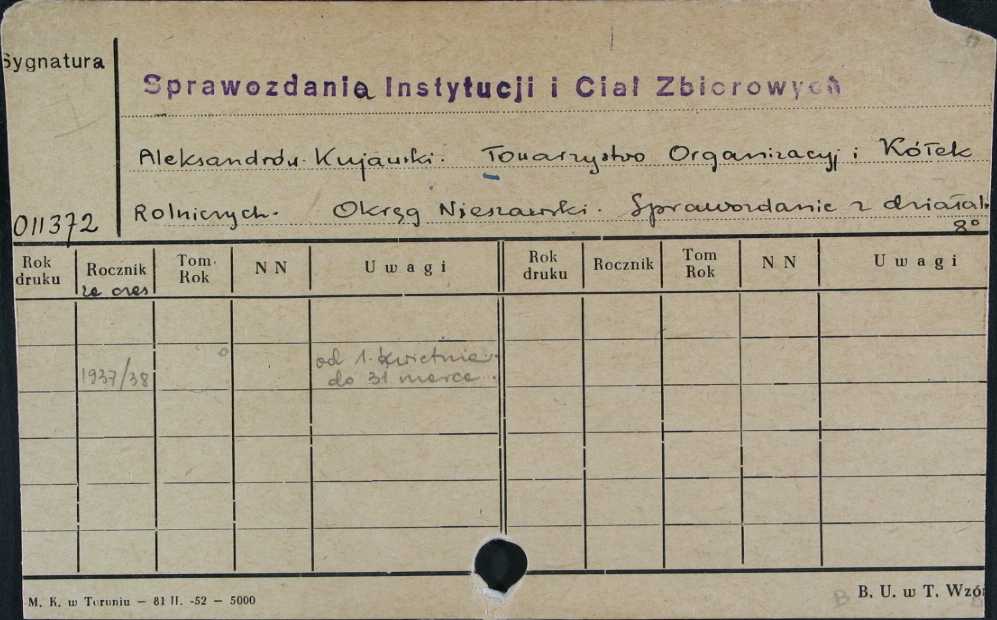 Sygnatura
Sprawozdania Instytucji i Ciał Zbiorowych
Aleksandrów-Kujawski. Towarzystwo Organizacyj i Kółek
Rolniczych. Okręg Nieszawski. Sprawozdanie z działal.
011372
8°
Rok druku Rocznik Tom Rok N N Uwagi Rok druku Rocznik Tom Rok N N Uwagi
za czas
1937/38 od 1. kwietnia
do 31 marca
M. K. w Toruniu — 81 II. -52 — 5000
B. U. w T. Wzór